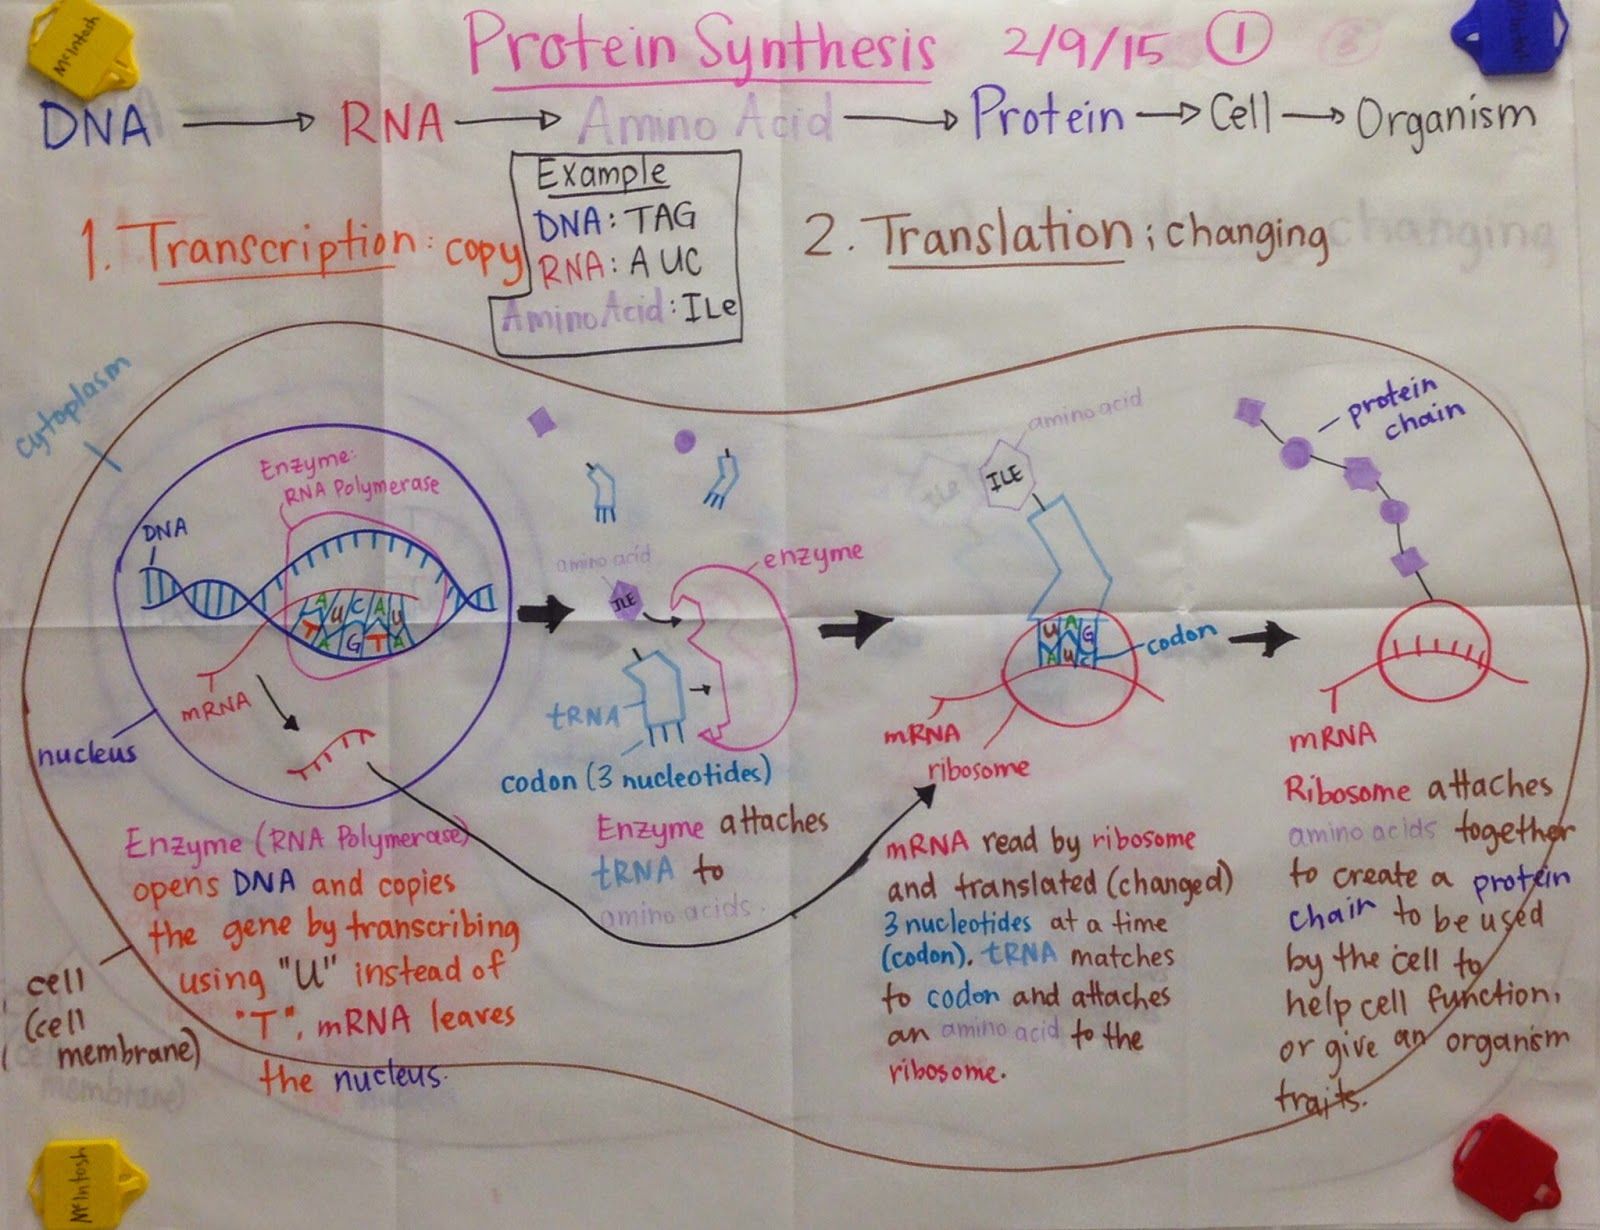 McIntosh
Protein Synthesis 2/9/15 1
DNA → RNA → Amino Acid → Protein → Cell → Organism
Example
DNA: TAG
RNA: AUC
Amino Acid: ILe
1. Transcription: copy
2. Translation; changing
cytoplasm
Enzyme:
RNA Polymerase
DNA
A U C A U
T A G T A
mRNA
nucleus
amino acid
ILE
enzyme
tRNA
codon (3 nucleotides)
amino acid
ILE
U A G
A U C
codon
mRNA
ribosome
protein
chain
mRNA
Enzyme (RNA Polymerase)
opens DNA and copies
the gene by transcribing
using "U" instead of
"T". mRNA leaves
the nucleus.
Enzyme attaches
tRNA to
amino acids.
mRNA read by ribosome
and translated (changed)
3 nucleotides at a time
(codon). tRNA matches
to codon and attaches
an amino acid to the
ribosome.
Ribosome attaches
amino acids together
to create a protein
chain to be used
by the cell to
help cell function,
or give an organism
traits.
cell
(cell
membrane)
McIntosh